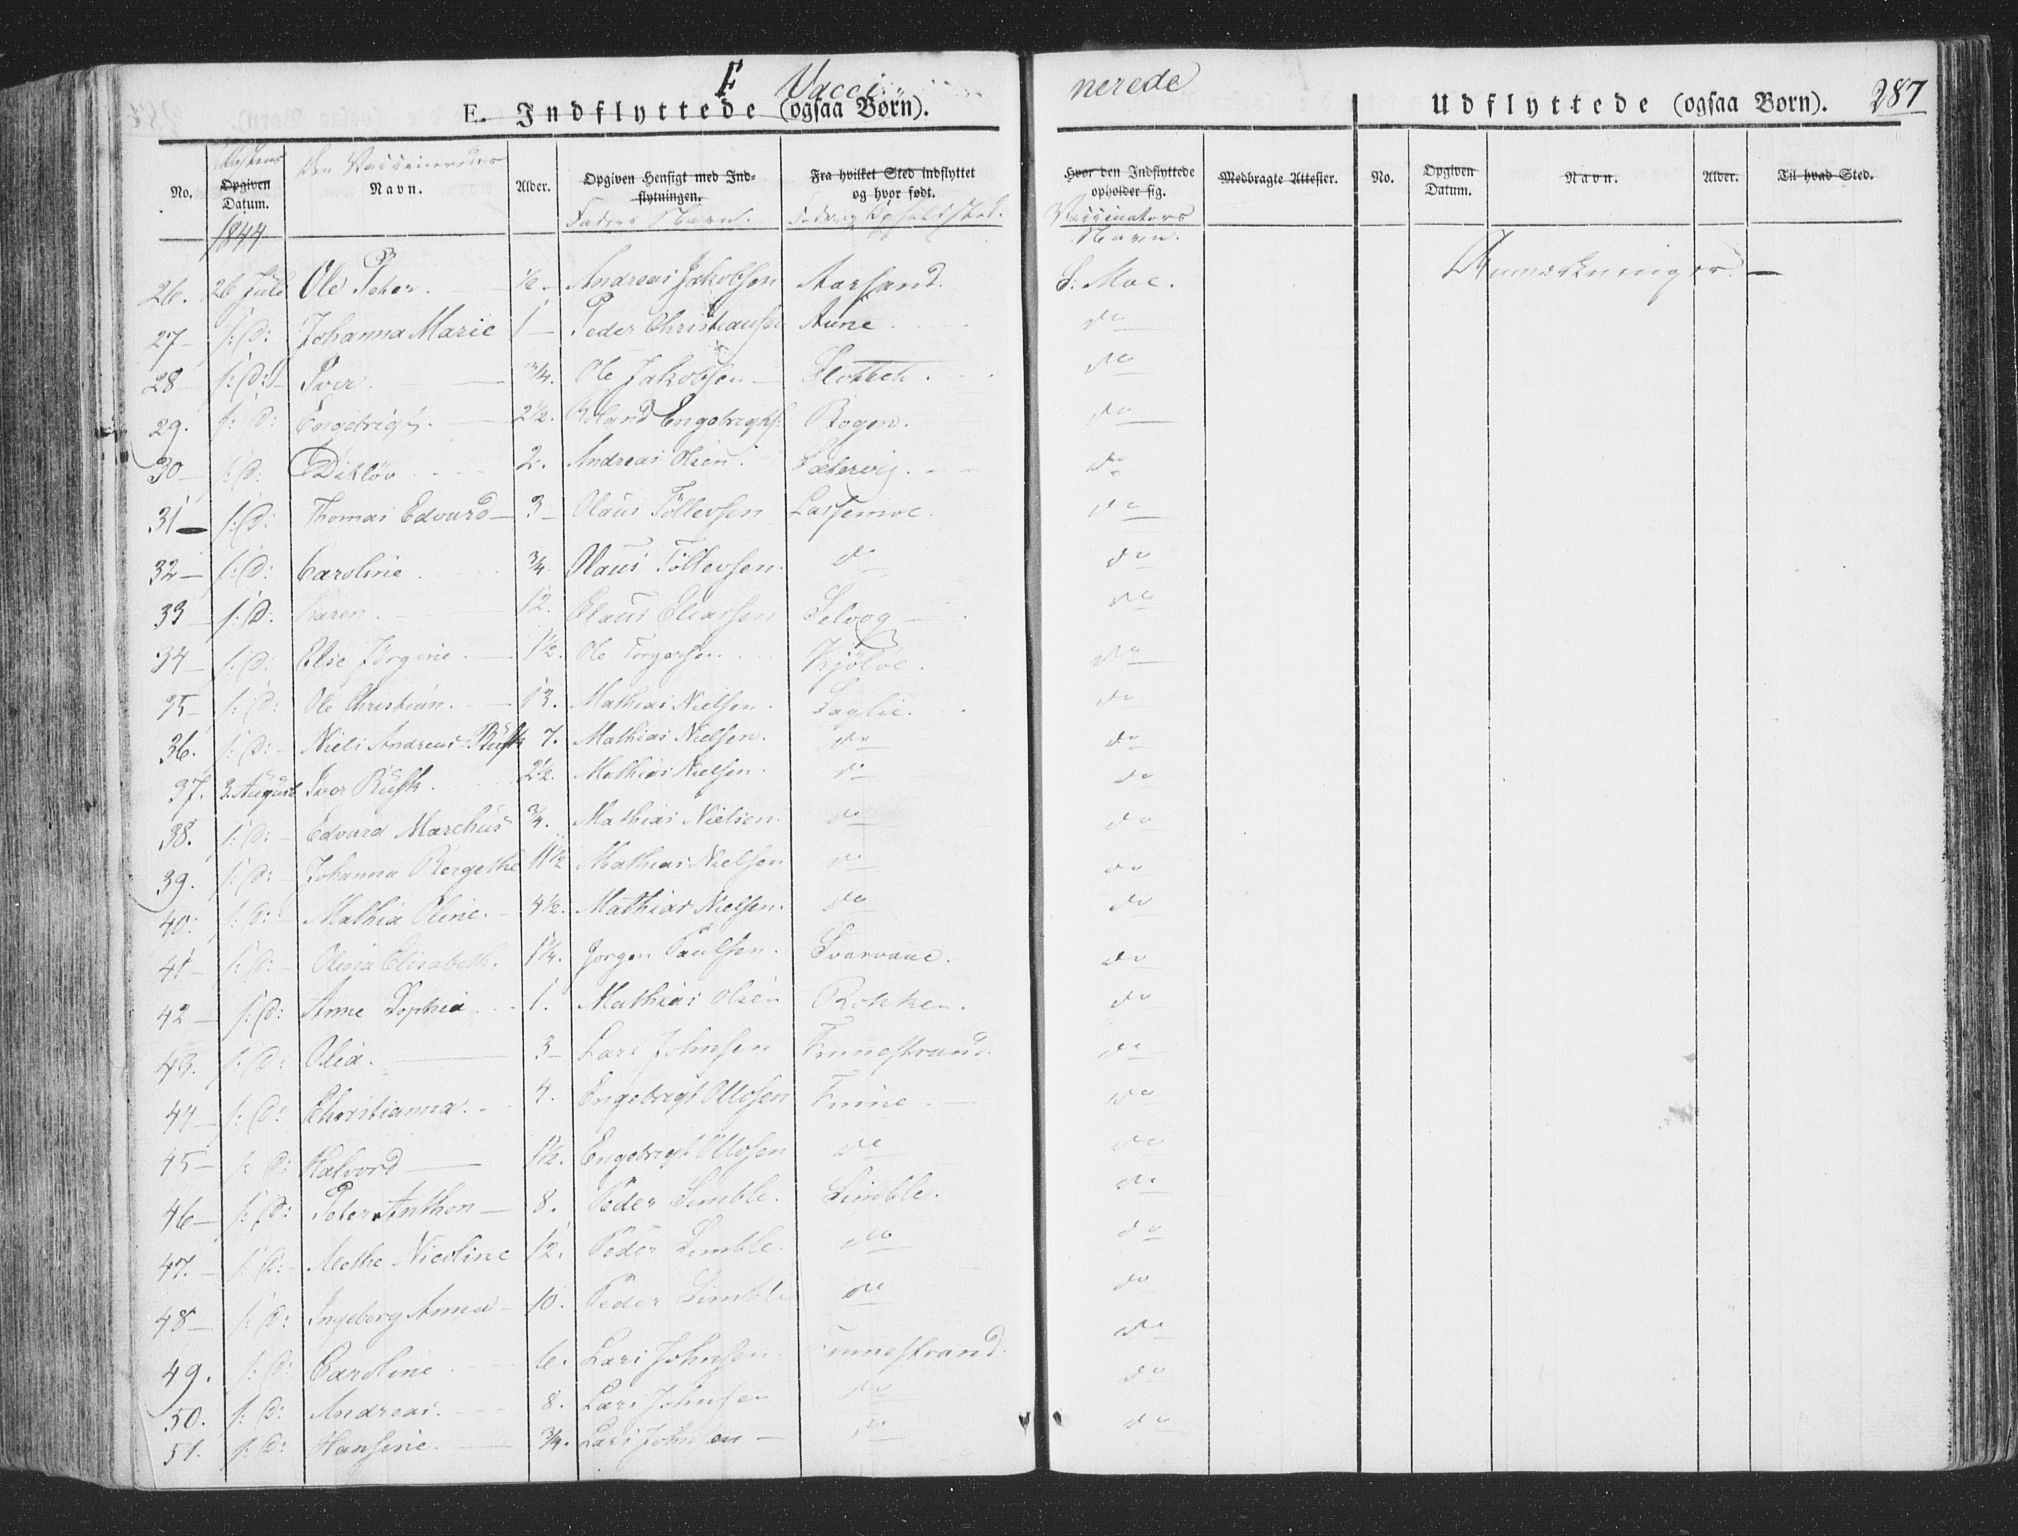 F Vacci nerede
E. Indflyttede (ogsaa Børn). Udflyttede (ogsaa Børn). 287
No. Opgiven Datum. Den Vaccineredes Navn. Alder. Opgiven Hensigt med Indflytningen. Faders Navn. Fra hvilket Sted indflyttet og hvor født. Hvor den Indflyttede opholder sig. Vaccinators Navn. Medbragte Attester. No. Opgiven Datum. Navn. Alder. Til hvad Sted.
1844
26. 26 Juli Ole Peter. ½ Andreas Jakobsen Aarsand. S. Moe. Anmærkninger. —
27 — s: D: Johanna Marie 1 — Peder Christiansen Aune do
28 — s: D: Iver. ¾. Ole Jakobsen — do
29. s: D: Engebrigt. 2½. Engebrigts. Bogen. do
30 — s: D: Ditløv 2. Andreas Olsen. Sætervig. do
31 — s: D: Thomas Edvard — 3 — Olaus Tøllevsen Lassemoe. do
32 — s: D: Caroline ¾. Olaus Tøllevsen. do do
33 s: D: Karen. 12. Olaus Eliassen Selvog do
34 — s: D: Else Jørgine. 1½. Ole Torgersen Kjøløe. do
35 — s: D: Ole Christian. 13. Mathias Nielsen. Faglie. do
36. s: D: Niels Andreas Busk 7. Mathias Nielsen. do do
37. 3. August Iver Busk. 2½. Mathias Nielsen. do do
38. s: D: Edvard Marchus ¾. Mathias Nielsen. do do
39. s: D: Johanna Bergethe 11½ Mathias Nielsen do do
40. s: D: Mathia Oline. 4½. Mathias Nielsen. do do
41 — s: D: Olava Elisabeth. 1¼. Jørgen Paulsen. Svarvaue. do
42 — s: D: Anne Sophia 1. Mathias Olsen Rokken. do
43. s: D: Olea. 3 — Lars Johnsen Finnestrand. do
44 — s: D: Christianna. 4. Engebrigt Ottosen Finne do
45 — s: D: Halvord 1½. Engebrigt Ottosen do do
46 — s: D: Peter Anthon — 8. Peder Simble. Simble. do
47. — s: D: Methe Nicoline 12. Peder Simble. do do
48 — s: D: Ingeborg Anna 10. Peder Simble do do
49. s: D: Caroline 6. Lars Johnsen. Finnestrand. do
50. s: D: Andreas. 8. Lars Johnsen do do
51. s: D: Hansine. ¾. Lars Johnsen — do do